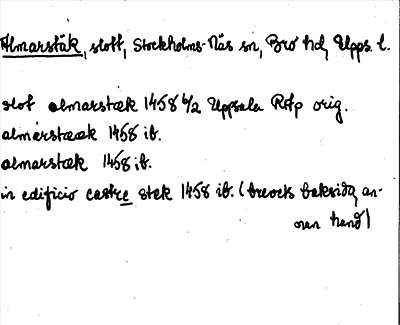 Almarstäk, slott, Stockholms-Näs sn, Bro hd, Upps. l.
slot almarstæk 1458 6/2 Uppsala RAp orig.
almerstæek 1458 ib.
almarstæk 1458 ib.
in edificio castre stek 1458 ib. (brevets baksida, an-
nan hand)